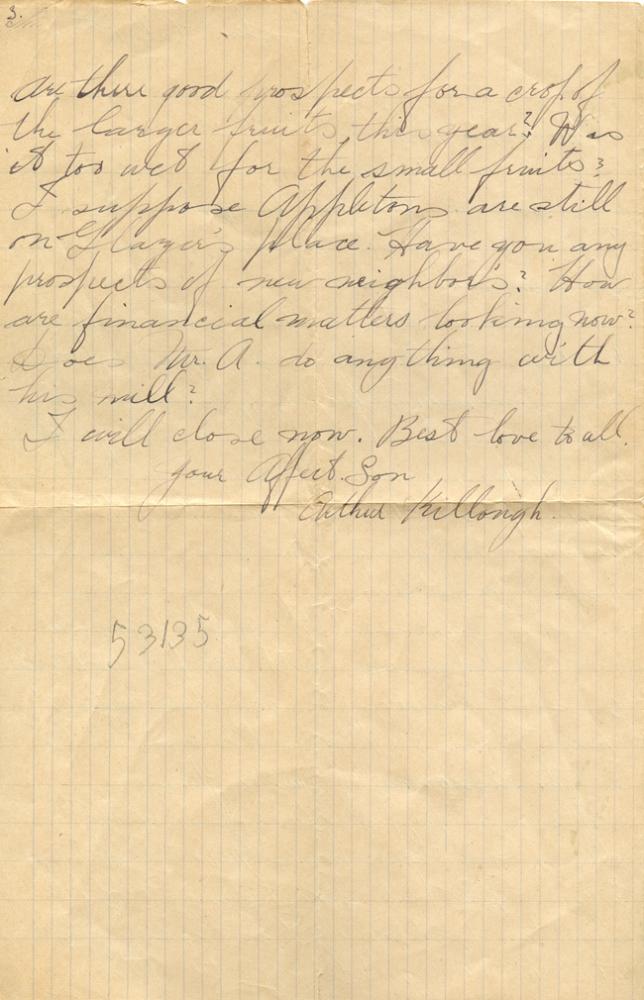 3.
Are there good prospects for a crop of
the larger fruits this year? Was
it too wet for the small fruits?
I suppose Appletons are still
on Glazier's place. Have you any
prospects of new neighbors? How
are financial matters looking now?
Does Mr. A. do anything with
his mill?
I will close now. Best love to all.
Your Affect. Son
Arthur Killough.
53135